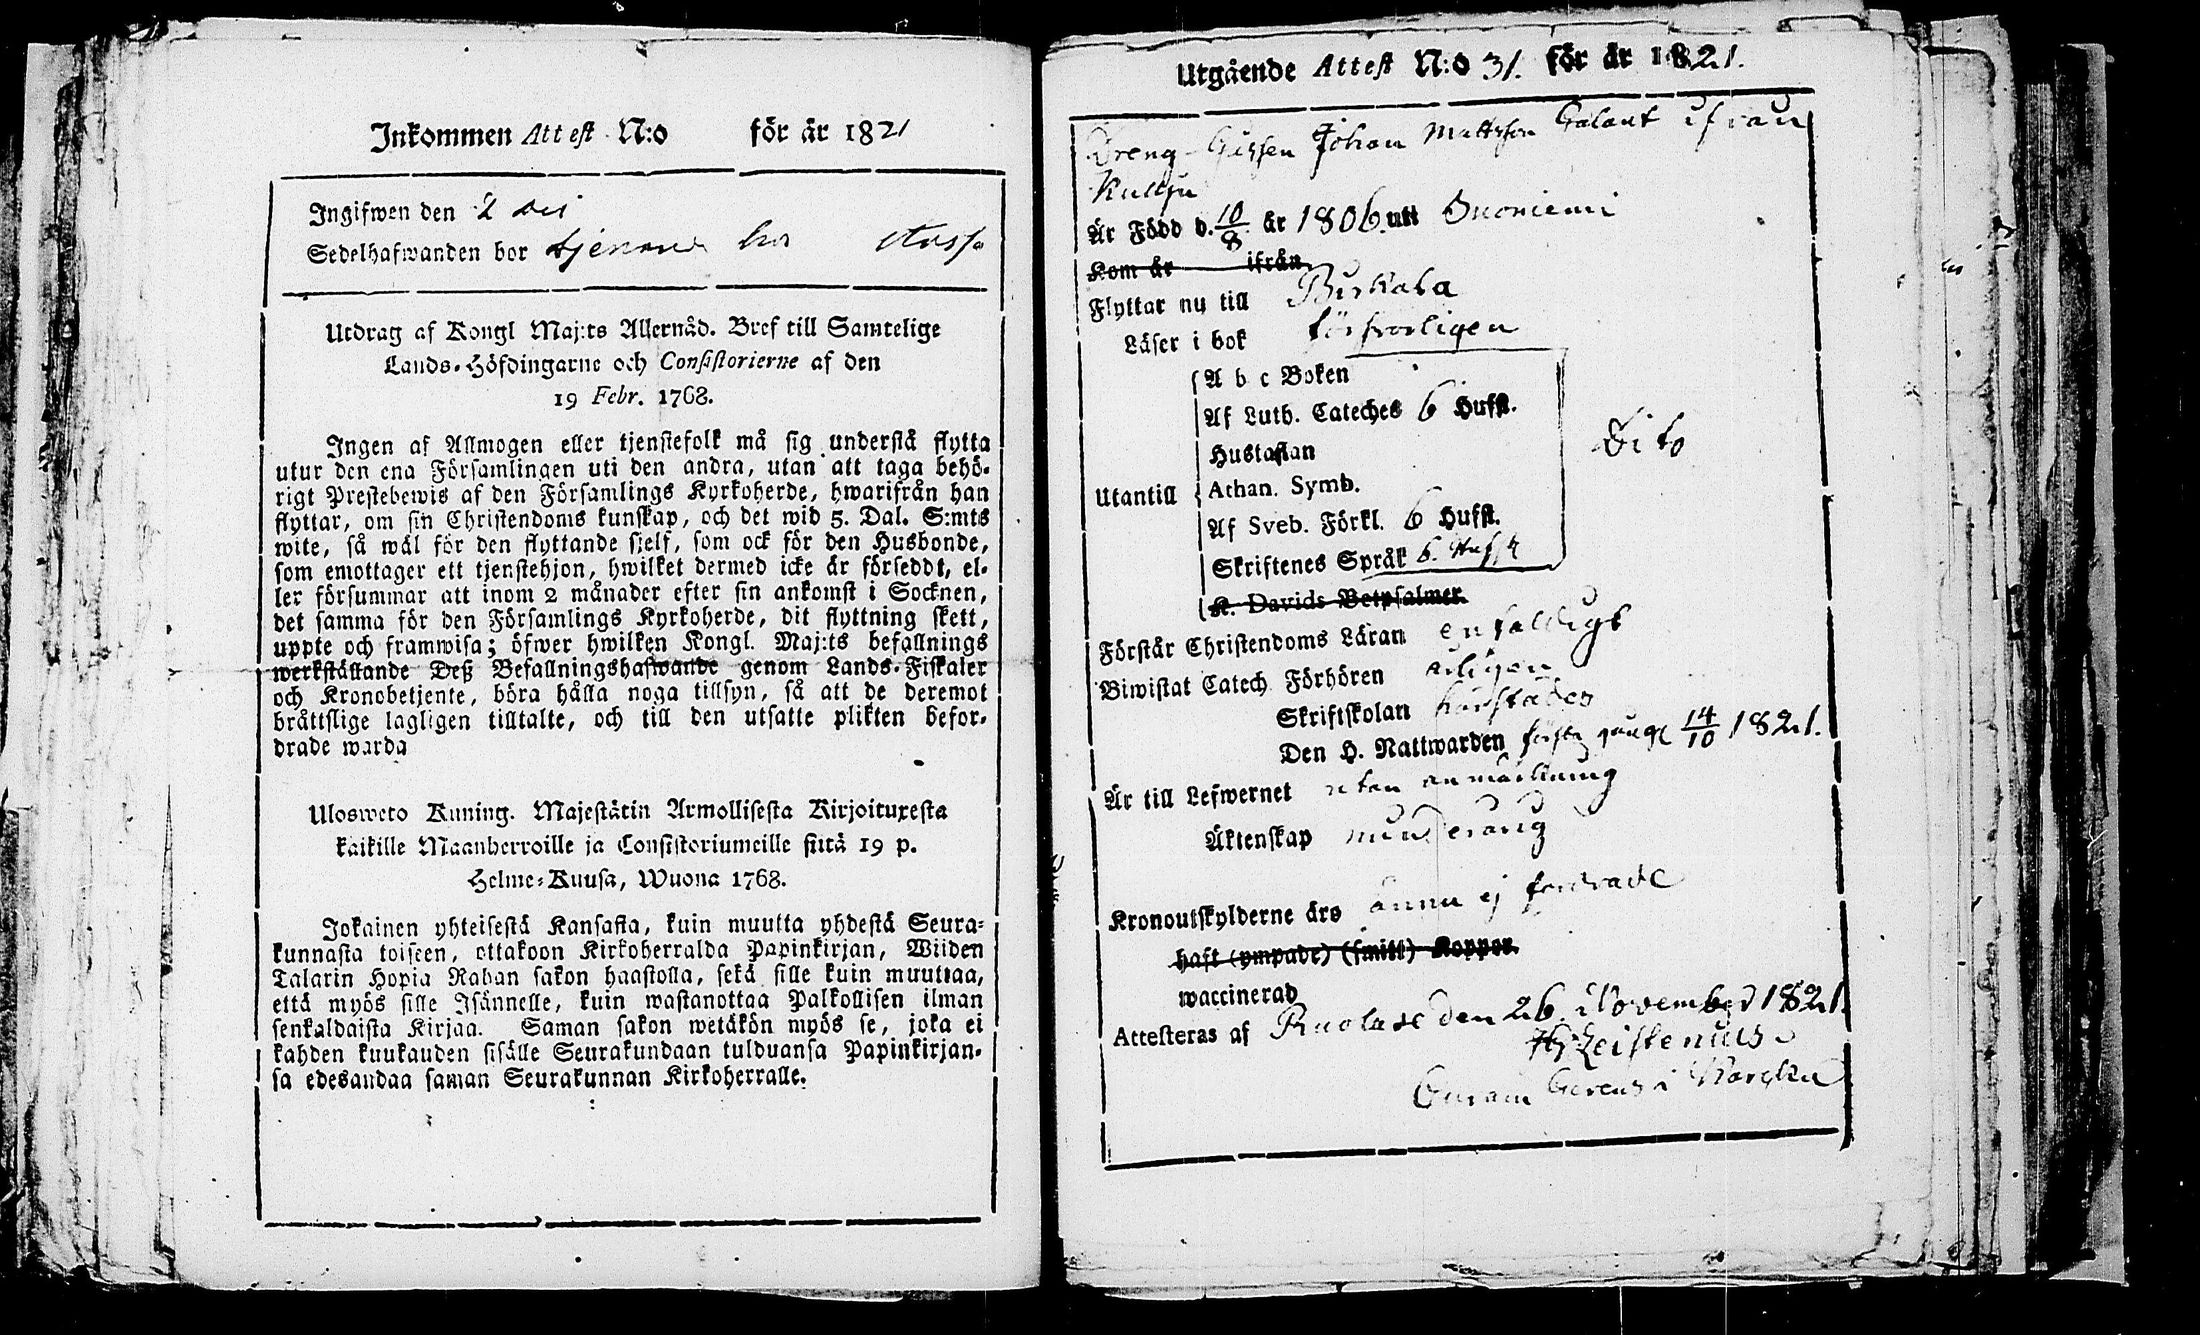 Inkommen Attest N:o för år 1821
Ingifwen den 2 Dec
Sedelhafwanden bor tjenane hos
Utdrag af Kongl Maj:ts Allernåd. Bref till Samtelige
Lands-Höfdingarne och Consistorierne af den
19 Febr. 1768.
Ingen af Allmogen eller tjenstefolk må sig understå flytta
utur den ena Församlingen uti den andra, utan att taga behö-
rigt Prestebewis af den Församlings Kyrkoherde, hwarifrån han
flyttar, om sin Christendoms kunskap, och det wid 5. Dal. S:mts
wite, så wäl för den flyttande sjelf, som ock för den Husbonde,
som emottager ett tjenstehjon, hwilket dermed icke är förseddt, el-
ler försummar att inom 2 månader efter sin ankomst i Socknen,
det samma för den Församlings Kyrkoherde, dit flyttning skett,
uppte och framwisa; öfwer hwilken Kongl. Maj:ts befallnings
werkställande Deß Befallningshafwande genom Lands-Fiskaler
och Kronobetjente, böra hålla noga tillsyn, så att de deremot
bråttslige lagligen tilltalte, och till den utsatte plikten befor-
drade warda
Ulosweto Kuning. Majestätin Armollisesta Kirjoituxesta
kaikille Maanherroille ja Consistoriumeille siitä 19 p.
Helme-Kuusa, Wuona 1768.
Jokainen yhteisestä Kansasta, kuin muutta yhdestä Seura-
kunnasta toiseen, ottakoon Kirkoherralda Papinkirjan, Wiiden
Talarin Hopia Rahan sakon haastolla, sekä sille kuin muuttaa,
että myös sille Isännelle, kuin wastanottaa Palkollisen ilman
senkaldaista Kirjaa. Saman sakon wetäkön myös se, joka ei
kahden kuukauden sisälle Seurakundaan tulduansa Papinkirjan-
sa edesandaa saman Seurakunnan Kirkoherralle.
Utgående Attest N:o 31. för år 1821.
Dreng Gossen Johan Mattsson Galant ifrån
Är Född d. 10/8 år 1806. uti Suoniemi
Kom år ifrån
Flyttar nu till Birkala
Läser i bok försvarligen
A b c Boken
Af Luth. Cateches 6 Hufst.
Hustaflan
Dito
Utantill Athan. Symb.
Af Sveb. Förkl. 6 Hufst.
Skriftenes Språk 6. Hufst
K. Davids Betpsalmer.
Förstår Christendoms Läran enfaldigt
Biwistat Catech Förhören årligen
Skriftskolan
Den H. Nattwarden första gång 14/10 1821.
Är till Lefwernet utan anmärkning
Äktenskap minderårig
Kronoutskylderne äro ännu ej fordrade
haft (ympade) (smitt) Koppor.
waccinerad
Attesteras af den 26. November 1821.